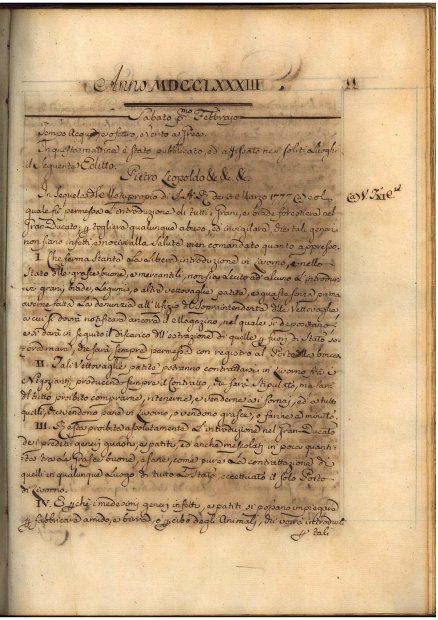 Anno MDCCLXXXIII. 11
Sabato Pmo Febbrajo
Tempo Acquoso e vento a Greco.
In questa mattina è stato pubblicato, ed affissato nei soliti luoghi
il seguente Editto.
Pietro Leopoldo &c. &c. &c.
In sequela del Motuproprio di S. A. R. de 10 Marzo 1777 col
quale fù permessa l'introduzione di tutti i Grani, e biade forestiere nel
Gran Ducato, e togliere qualunque abuso, ed invigilare che tali generi
non siano infetti, e nocivi alla salute vien comandato quanto appresso.
I. Che ferma stante la libera introduzione in Livorno, e nello
Stato delle grasce buone, e mercantili, non sia lecito ad alcuno l'introdur-
vi grani, biade, legumi, o altre vettovaglie patite, e guaste senza prima
averne fatta la denunzia all'Ufizio del Soprintendente delle Vettovaglie
a cui si dovrà notificare ancora il Magazzino, nel quale si depositano
e si darà in seguito il discarico dell'estrazione di quelle fuori di Stato
mare, che sarà sempre permessa con registro al Porto alla bocca.
II. Tali Vettovaglie patite potranno contrattarsi in Livorno frà i
Negozianti producendo sempre il Contratto, che sarà stipulato, ma sarà
del tutto proibito comprarne, ritenerne, e venderne a i fornaj, ed a tutti
quelli, che vendono pane in Livorno, o vendono grasce, o farine a minuto.
III. Resta proibita assolutamente l'introduzione nel Gran-Ducato
dei predetti generi guasti, e patiti, ed anche mescolati in poca quanti-
tà tra le Grasce buone, e sane, come pure la contrattazione di
quelli in qualunque luogo di tutto lo Stato, eccettuato il solo Porto
di Livorno.
IV. E perchè i medesimi generi infetti, e patiti si possano impiegare
fabbricare amido, e birra, o cibo degli Animali, chi vorrà introdurli
tali